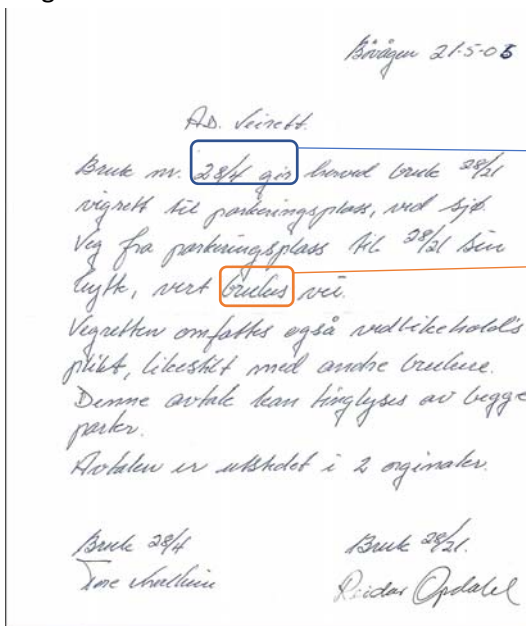 Bövågen 21-5-05
AD. Veirett.
Bruk nr. 28/4 gir herved bruk 28/21
vigrett til parkeringsplass, ved sjø.
Veg fra parkeringsplass til 28/21 sin
hytt, vert brukes vei.
Vegretten omfattes også vedlikeholds
plikt, likestilt med andre brukere.
Denne avtale kan tinglyses av begge
parter.
Avtalen er utstedet i 2 orginaler.
Bruk 28/4 Bruk 28/21.
Tore Reidar Opdahl